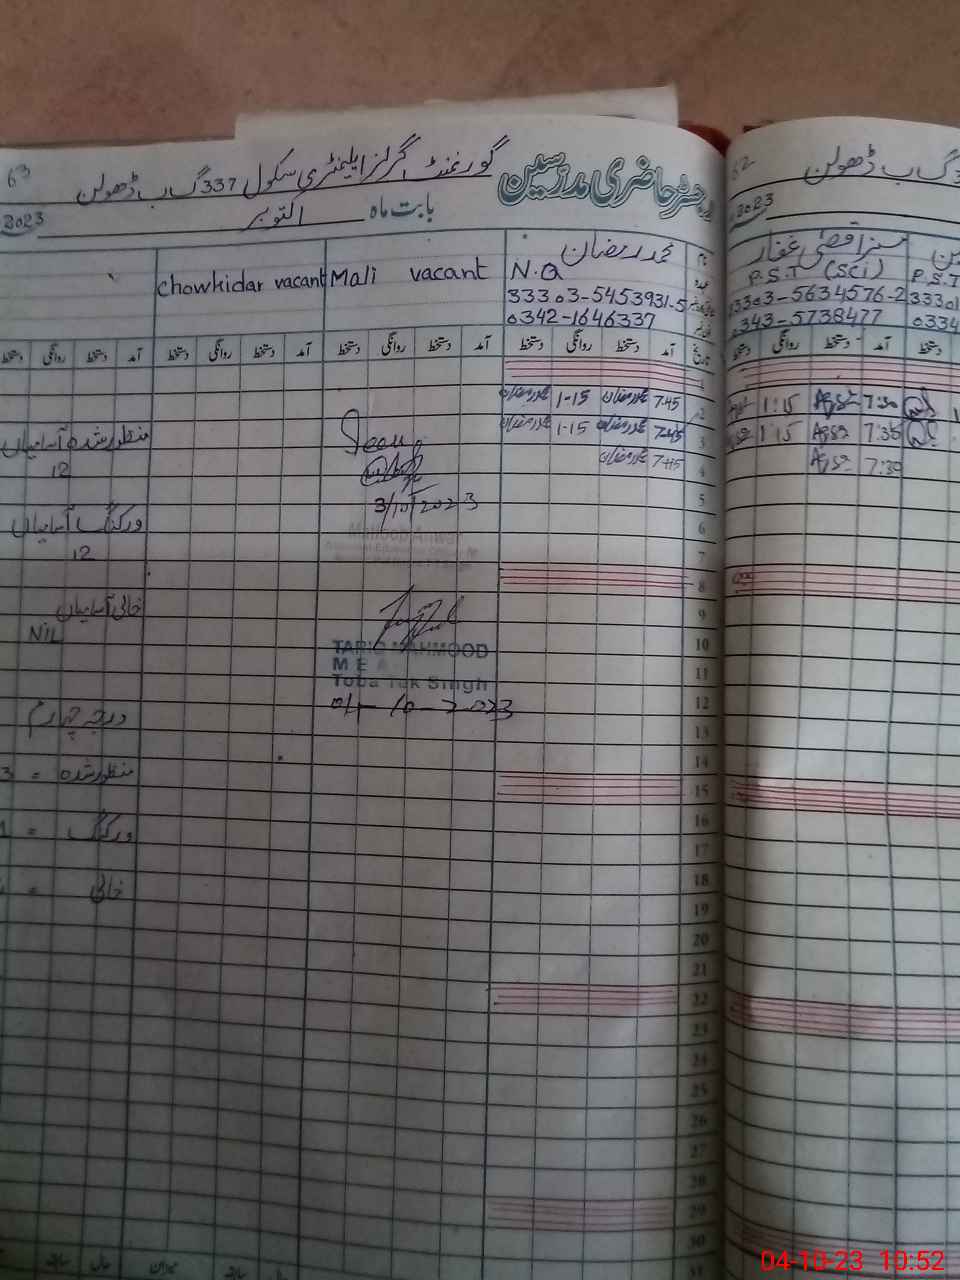 رجسٹر حاضری مدرسین
گورنمنٹ گرلز ایلیمنٹری سکول 337 گ ب ڈھولن
63
بابت ماہ اکتوبر
2023
نام
عہدہ
محمد رمضان
N.Q
33303-5453931-5
0342-1646337
Mali vacant
chowkidar vacant
تاریخ
آمد دستخط روانگی دستخط آمد دستخط روانگی دستخط آمد دستخط روانگی دستخط آمد دستخط روانگی دستخط
1
2 7-45 محمد رمضان 1-15 محمد رمضان
3 7-45 محمد رمضان 1-15 محمد رمضان
4 7-45 محمد رمضان
5
6
7
8
9
10
11
12
13
14
15
16
17
18
19
20
21
22
23
24
25
26
27
28
29
30
31
Seen
3/10/2023
TARIQ MAHMOOD
M E A
Toba Tek Singh
04-10-2023
منظور شدہ آسامیاں
12
ورکنگ آسامیاں
12
خالی آسامیاں
NIL
درجہ چہارم
منظور شدہ = 3
ورکنگ =
خالی =
میزان سابقہ حال
62
گ ب ڈھولن
2023
مسز اقصیٰ غفار
P.S.T (SCI)
33303-5634576-2
0343-5738477
P.S.T
33301
0334
آمد دستخط روانگی دستخط
7:30 1:15
7:35 1:15
7:30
04-10-23 10:52